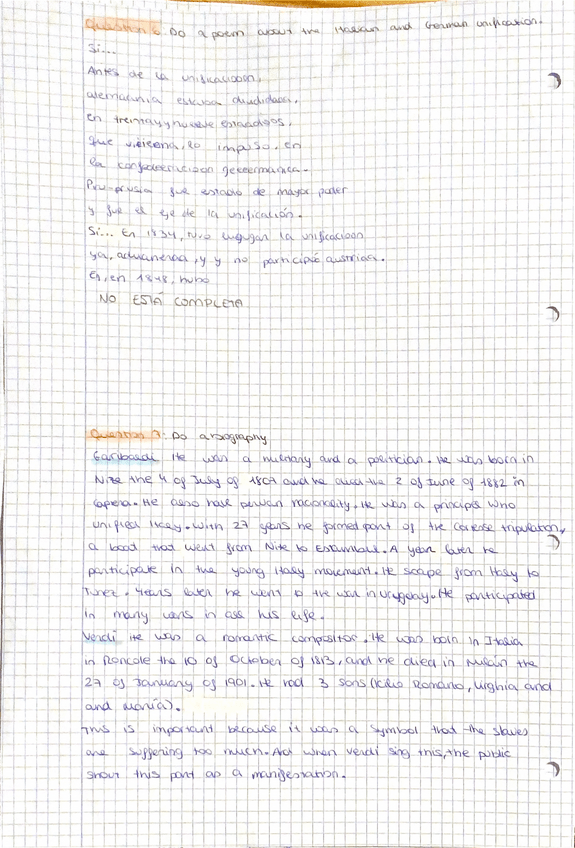 Question 6 Do a poem about the Italian and German unification.
Si...
Antes de la unificacioon,
alemaania estaba diudidaaa,
en treintayynueve estaaados,
que vieeena, lo impuso, en
la confedeeracioon geeermanica.
Pru-prusia fue estado de mayor poder
y fue el eje de la unificación.
Si... En 1834, tuvo lugugar la unificacioon
ya, aduaneraa, y y no participó austriaa.
En, en 1848, hubo
NO ESTÁ COMPLETA
Question 7: Do a biography
Garibaldi He was a military and a politician. He was born in
Nize the 4 of July of 1807 and he died the 2 of June of 1882 in
Caprera. He also have peruan nacionality. He was a principis who
unified Italy. With 27 years he formed part of the Carense tripulation,
a boat that went from Nite to Estambul. A year later he
participate in the young Italy movement. He scape from Italy to
Tunez. Years later he went to the war in Uruguay. He participated
in many wars in all his life.
Verdi He was a romantic compositor. He was born in Italia
in Roncole the 10 of October of 1813, and he died in Milan the
27 of January of 1901. He had 3 sons (Icilio Romano, Virghia and
and María).
This is important because it was a symbol that the slaves
are suffering too much. And when Verdi sing this, the public
shout this part as a manifestation.